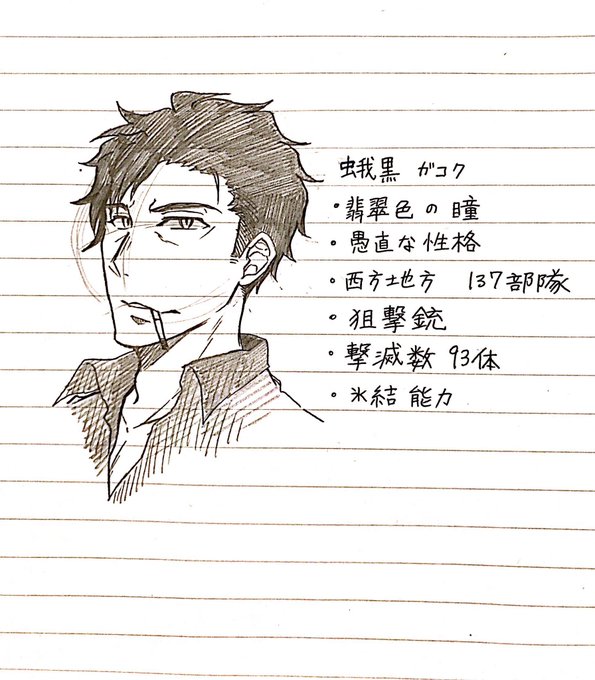 蛾黒 ガコク
・翡翠色の瞳
・愚直な性格
・西方地方 137部隊
・狙撃銃
・撃滅数 93体
・氷結能力